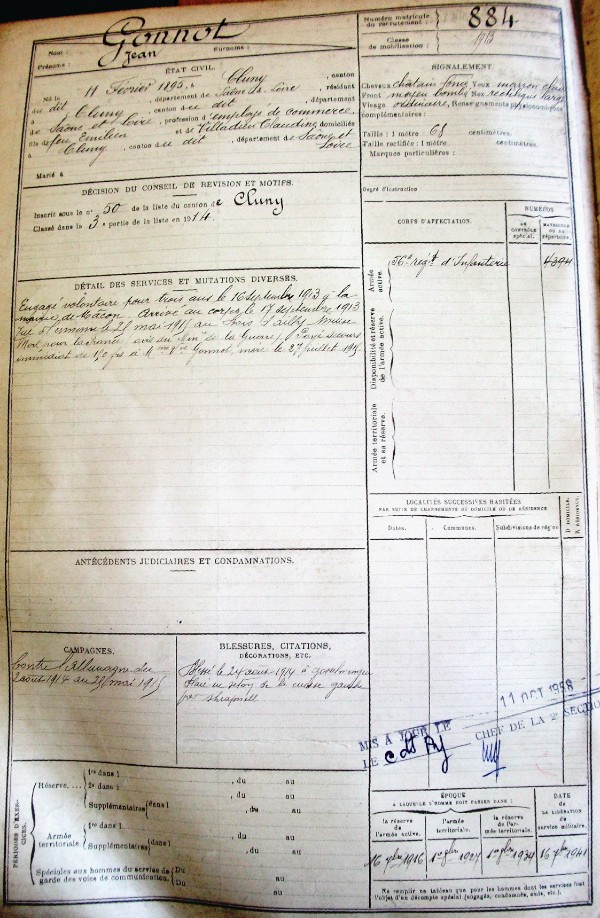 Nom : Gonnot Surnoms :
Prénoms : Jean
ÉTAT CIVIL.
Né le 11 Février 1893, à Cluny, canton
dudit Cluny, département de Saône et Loire, résidant
à Cluny, canton du dit, département
de Saône et Loire, profession d'employé de commerce,
fils de feu Emilien et de Villadieu Claudine, domiciliés
à Cluny, canton du dit, département de Saône et Loire
Marié à
DÉCISION DU CONSEIL DE REVISION ET MOTIFS.
Inscrit sous le n° 50 de la liste du canton de Cluny
Classé dans la 3e partie de la liste en 1914.
DÉTAIL DES SERVICES ET MUTATIONS DIVERSES.
Engagé volontaire pour trois ans le 16 septembre 1913 à la
mairie de Mâcon. Arrivé au corps le 17 septembre 1913
Tué à l'ennemi le 25 mai 1915 au Bois d'Ailly Meuse
Mort pour la france. Payé secours
immédiat de 150 frs à Mme Vve Gonnot, mère le 27 juillet 1915.
ANTÉCÉDENTS JUDICIAIRES ET CONDAMNATIONS.
CAMPAGNES.
Contre l'allemagne du
2 août 1914 au 25 mai 1915
BLESSURES, CITATIONS,
DÉCORATIONS, ETC.
Blessé le 24 août 1914 à
Plaie en séton de la cuisse gauche
par shrapnell
PÉRIODES D'EXERCICES.
Réserve, ... 1re dans l , du au
2e dans l , du au
Supplémentaires dans l , du au
Armée territoriale. 1re dans l , du au
Supplémentaires dans l , du au
Spéciales aux hommes du service de garde des voies de communication. Du au
Du au
Numéro matricule du recrutement : 884
Classe de mobilisation : 1913
SIGNALEMENT
Cheveux châtain foncé Yeux marron clair
Front moyen bombé Nez rectiligne large
Visage ordinaire, Renseignements physionomiques
complémentaires :
Taille : 1 mètre 65 centimètres.
Taille rectifiée : 1 mètre centimètres.
Marques particulières :
Degré d'instruction
CORPS D'AFFECTATION.
NUMÉROS
AU CONTRÔLE spécial.
MATRICULE OU AU répertoire.
Armée active.
56e régt d'Infanterie 4394
Disponibilité et réserve de l'armée active.
Armée territoriale et sa réserve.
LOCALITÉS SUCCESSIVES HABITÉES
PAR SUITE DE CHANGEMENTS DE DOMICILE OU DE RÉSIDENCE
Dates. Communes. Subdivisions de région
D. DOMICILE.
R. RÉSIDENCE.
11 OCT 1958
MIS A JOUR LE
LE CHEF DE LA 2e SECTION
ÉPOQUE
A LAQUELLE L'HOMME DOIT PASSER DANS :
DATE
DE LA LIBÉRATION DU
service militaire.
la réserve de l'armée active.
l'armée territoriale.
la réserve de l'armée territoriale.
16 7bre 1916 1er 8bre 1927 1er 8bre 1934 16 7bre 1941
Ne remplir ce tableau que pour les hommes dont les services font
l'objet d'un décompte spécial (engagés, condamnés, omis, etc.)